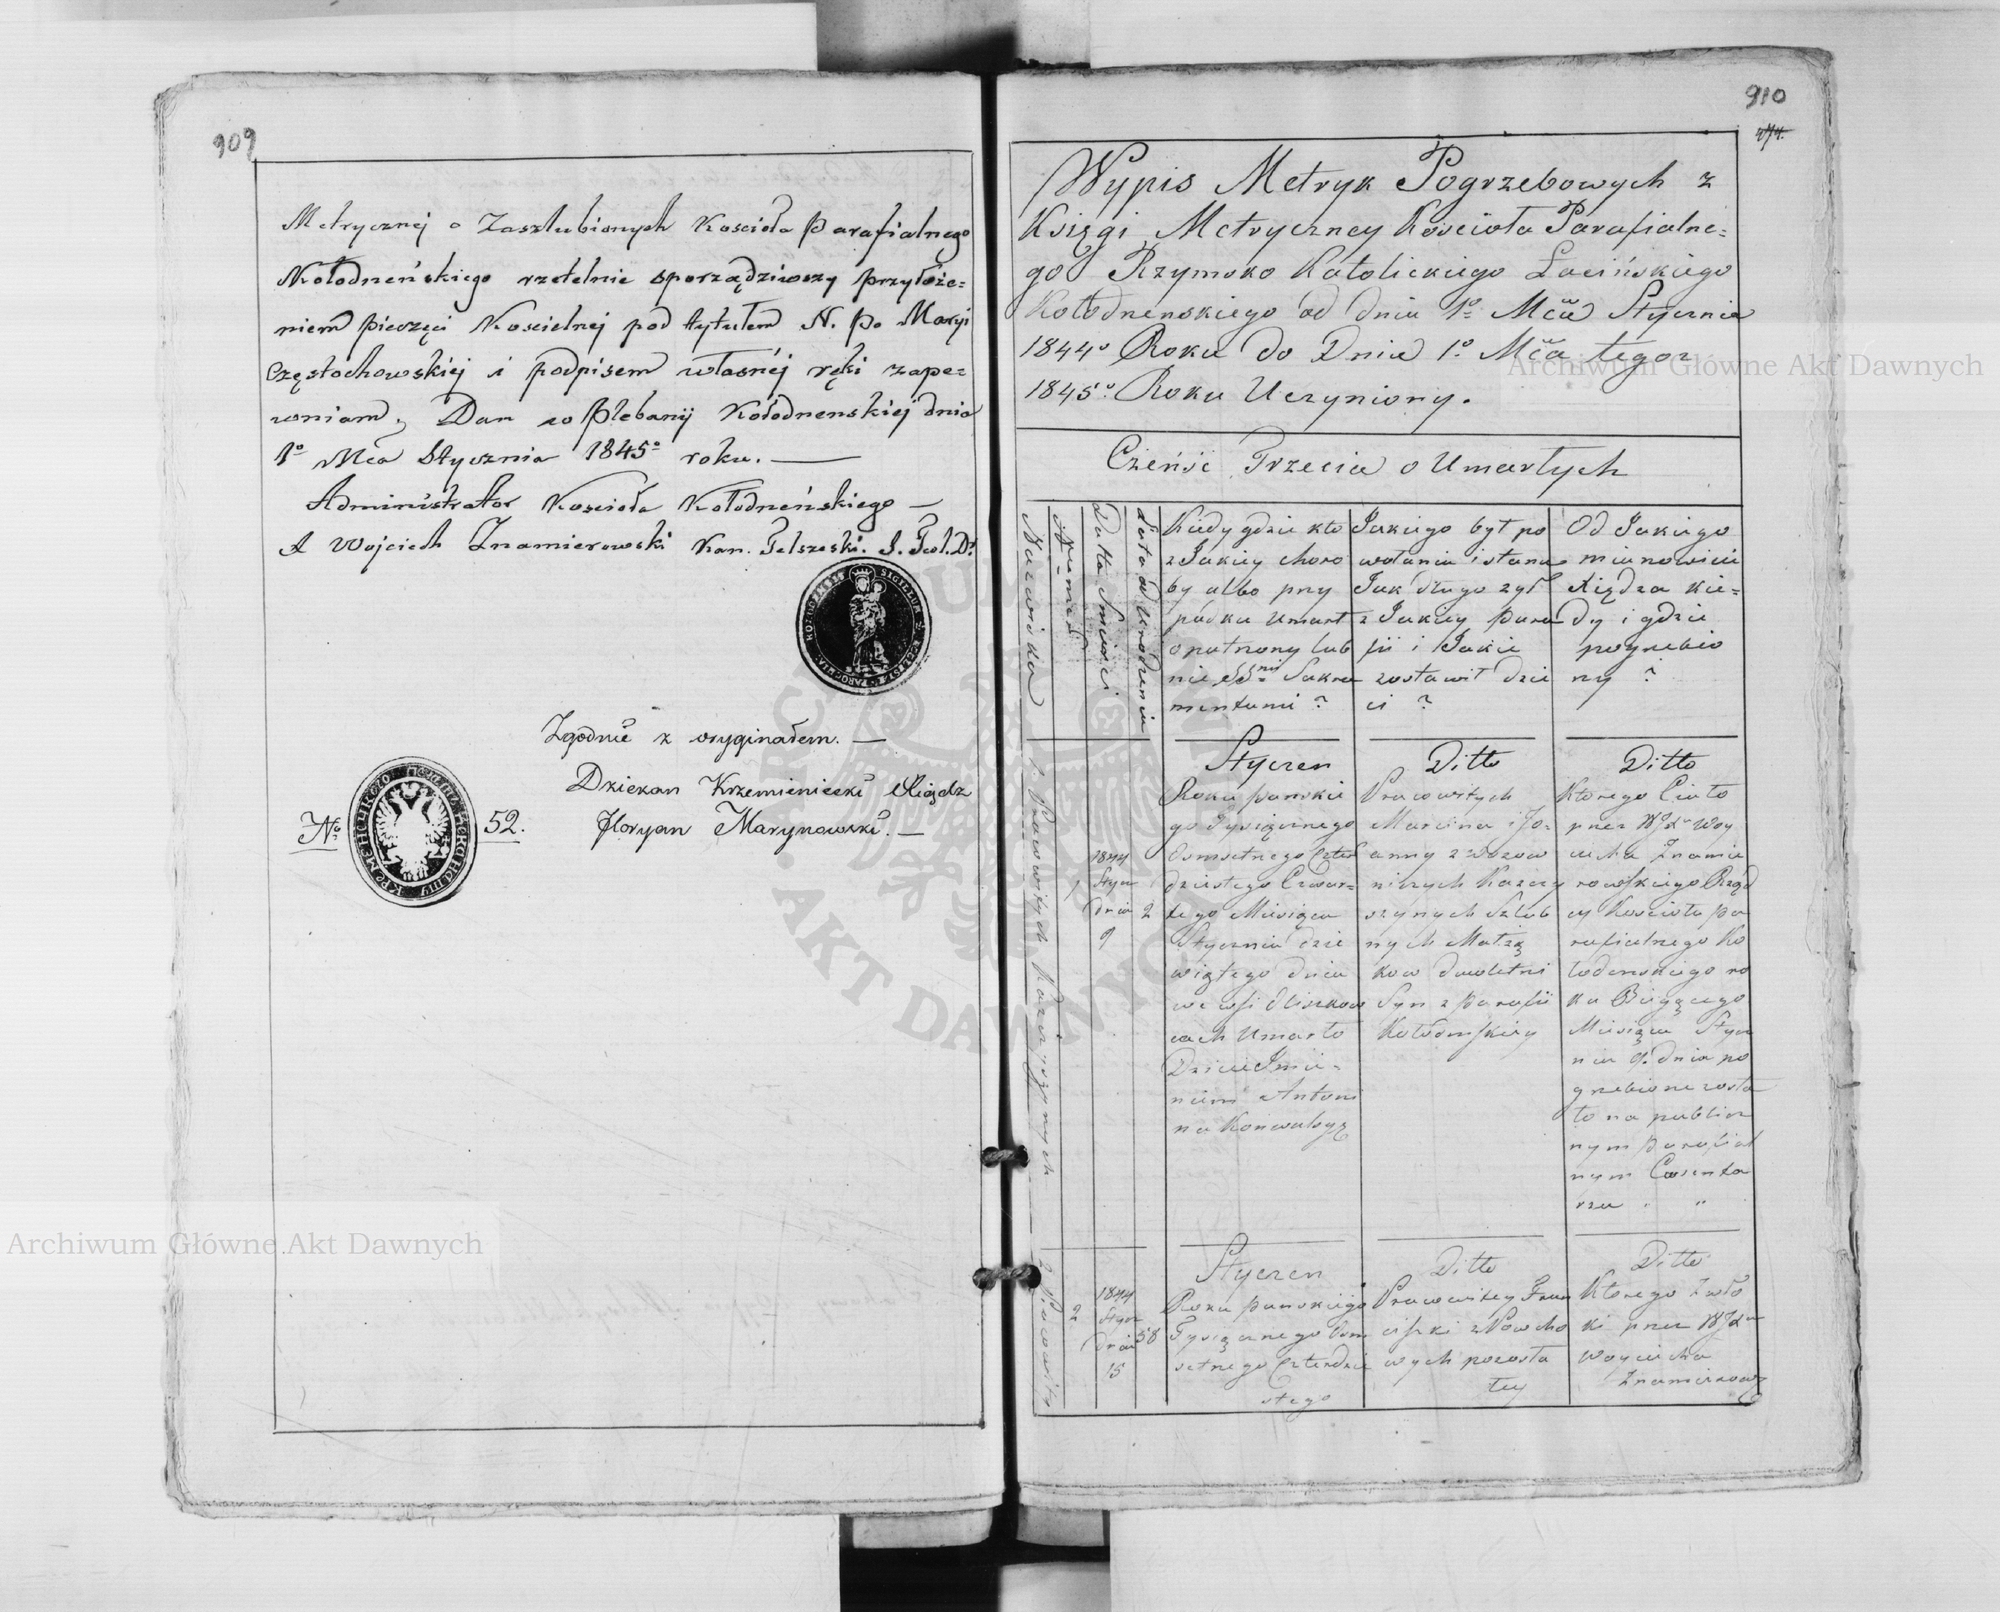 909
Metrycznej o Zaszlubionych Kościoła Parafialnego
Kołodneńskiego rzetelnie sporządziwszy przyłoże=
niem pieczęci Koscielnej pod tytułem N. P. Maryi
Częstochowskiej i podpisem własnéj ręki zape=
wniam. Dan w Plebanij Kołodnenskiej dnia
1º Mca Stycznia 1845º roku.
Administrator Kościoła Kołodneńskiego
X Wojciech Znamierowski Kan.
Zgodnie z oryginałem.
Dziekan Krzemieniecki Xiądz
Floryan Marynowski.
Nº 52.
910
Wypis Metryk Pogrzebowych z
Księgi Metryczney Kościoła Parafialne=
go Rzymsko Katolickiego Łacińskiego
Kołodnenskiego od dnia 1º Mca Stycznia
1844º Roku do Dnia 1º Mca tegoż
1845º Roku Uczyniony.
Czeńść Trzecia o Umarłych
Nazwiska
Numer
Datta Smierci
Lata od Urodzenia
Kiedy gdzie kto
z Jakiey choro
by albo przy
padku umarł
opatrzony lub
nie SSmi Sakra
mentami ?
Jakiego był po
wołania i stanu
Jak długo żył
z Jakiey para
fii i Jakie
zostawił dzie
ci ?
Od Jakiego
mianowicie
Xiędza kie=
dy i gdzie
pogrzebio
ny ?
1. Pracowitych Kaczyszynych
1
1844
Stycz
dnia
9
2
Styczen
Roku panskie
go Tysiącznego
Osmsetnego Czter
dziestego Czwar=
tego Miesiąca
Stycznia dzie
wiątego dnia
we wsi Oliszkow
cach Umarło
Dziecie Imie=
niem Antoni
na Konwulsyą
Ditto
Pracowitych
Marcina i Jo=
anny z Wozow
niczych Kaczy
szynych Szlub
nych Małżą
kow dwóletni
Syn z parafii
Kołodenskiey
Ditto
Ktorego Ciało
przez WJX Woy
ciecha Znamie
rowskiego Rząd
cy Kościoła pa
rafialnego Ko
łodenskiego ro
ku Bieżącego
Miesiąca Stycz
nia 9. dnia po
grzebione zosta
ło na publicz
nym parafial
nym Cmenta
rzu
2 Pracowita
2
1844
Stycz
dnia
15
58
Styczen
Roku panskiego
Tysiącznego Osm
setnego Czterdzie
stego
Ditto
Pracowitey Fran
ciszki z Nowcho
wych pozosta
łey
Ditto
Ktorego Zwło
ki przez WJX
Woyciecha
Znamierowsk
Archiwum Główne Akt Dawnych
Archiwum Główne Akt Dawnych